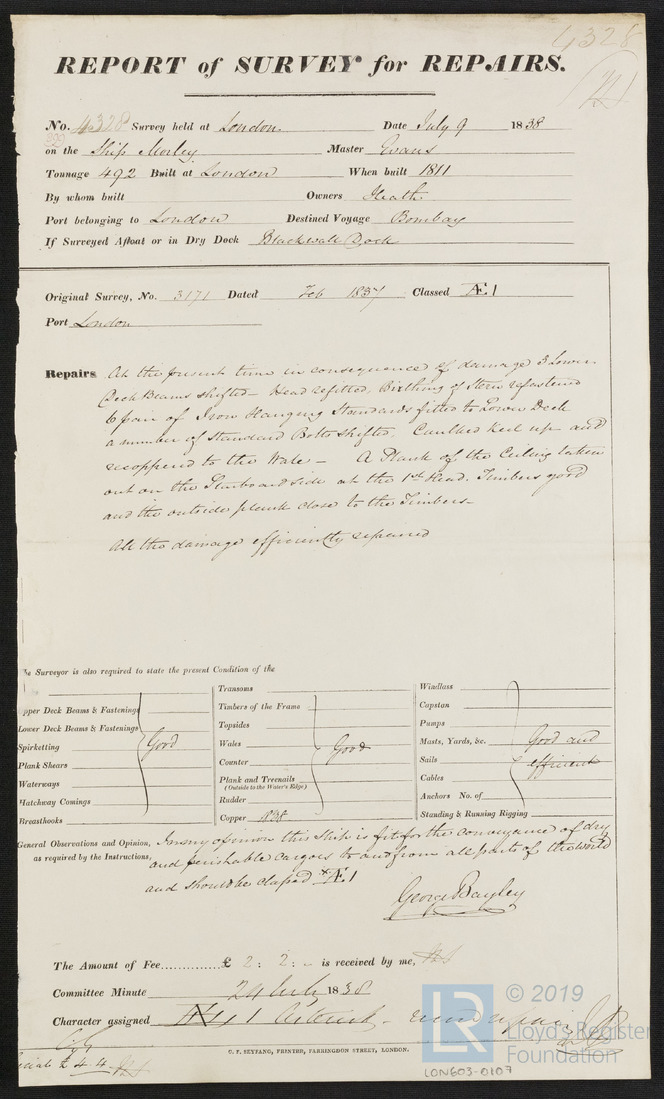 4328
REPORT of SURVEY for REPAIRS.
No. 4328 Survey held at London Date July 9 1838
on the Ship Morley Master Evans
Tonnage 492 Built at London When built 1811
By whom built Owners Heath
Port belonging to London Destined Voyage Bombay
If Surveyed Afloat or in Dry Dock Blackwall Dock
Original Survey, No. 3171 Dated Feb 1837 Classed Æ1
Port London
Repairs At the present time in consequence of damage 3 Lower
Deck Beams shifted - Head refitted, Birthing of Stern refastened
6 pair of Iron Hanging Standards fitted to Lower Deck
a number of Standard Bolts shifted. Caulked Keel up and
recoppered to the Wale - A Plank of the Ceiling taken
out on the Starboard side at the 1st Head. Timbers good
and the outside plank close to the Timbers -
All the damage efficiently repaired
The Surveyor is also required to state the present Condition of the
Upper Deck Beams & Fastenings
Lower Deck Beams & Fastenings
Spirketting Good
Plank Shears
Waterways
Hatchway Comings
Breasthooks
Transoms
Timbers of the Frame
Topsides
Wales Good
Counter
Plank and Treenails
(Outside to the Water's Edge)
Rudder
Copper 1838
Windlass
Capston
Pumps
Masts, Yards, &c. Good and
Sails efficient
Cables
Anchors No. of
Standing & Running Rigging
General Observations and Opinion, In my opinion this Ship is fit for the conveyance of dry
as required by the Instructions, and perishable cargoes to and from all parts of the world
and should be classed *Æ1
George Bayley
The Amount of Fee £ 2 : 2 : - is received by me,
Committee Minute 24 July 1838
Character assigned
C. F. SEYFANG, PRINTER, FARRINGDON STREET, LONDON.
LON603-0107
© 2019
LR Lloyd's Register
Foundation